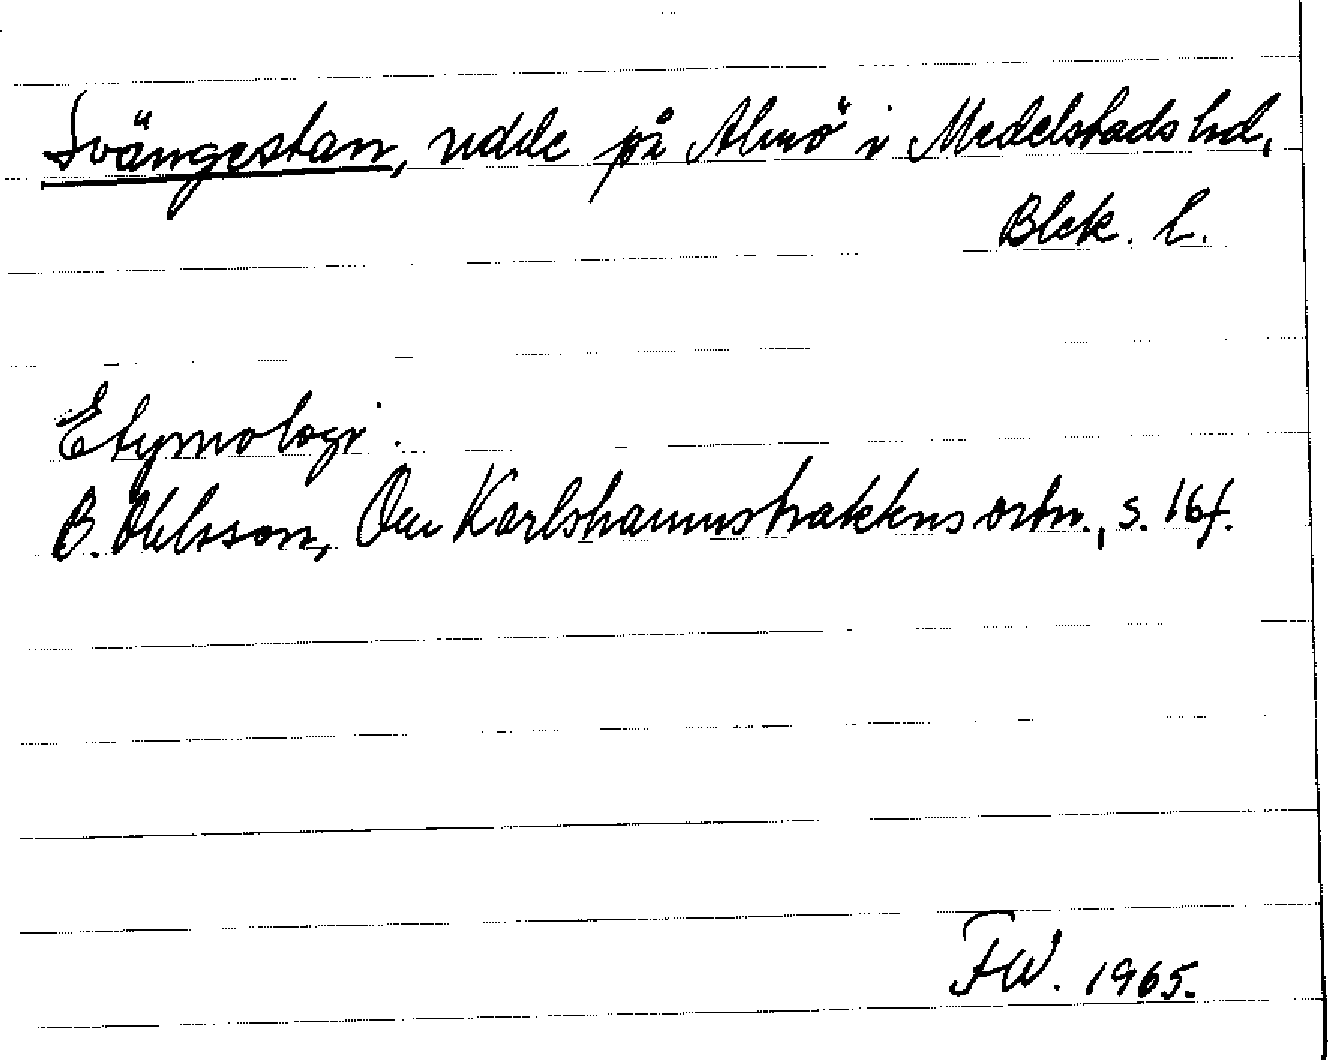 Svängestan, udde på Almö i Medelstads hd,
Blek. l.
Etymologi.
B. Ohlsson, Om Karlshamnstraktens ortn., s. 16f.
FW. 1965.